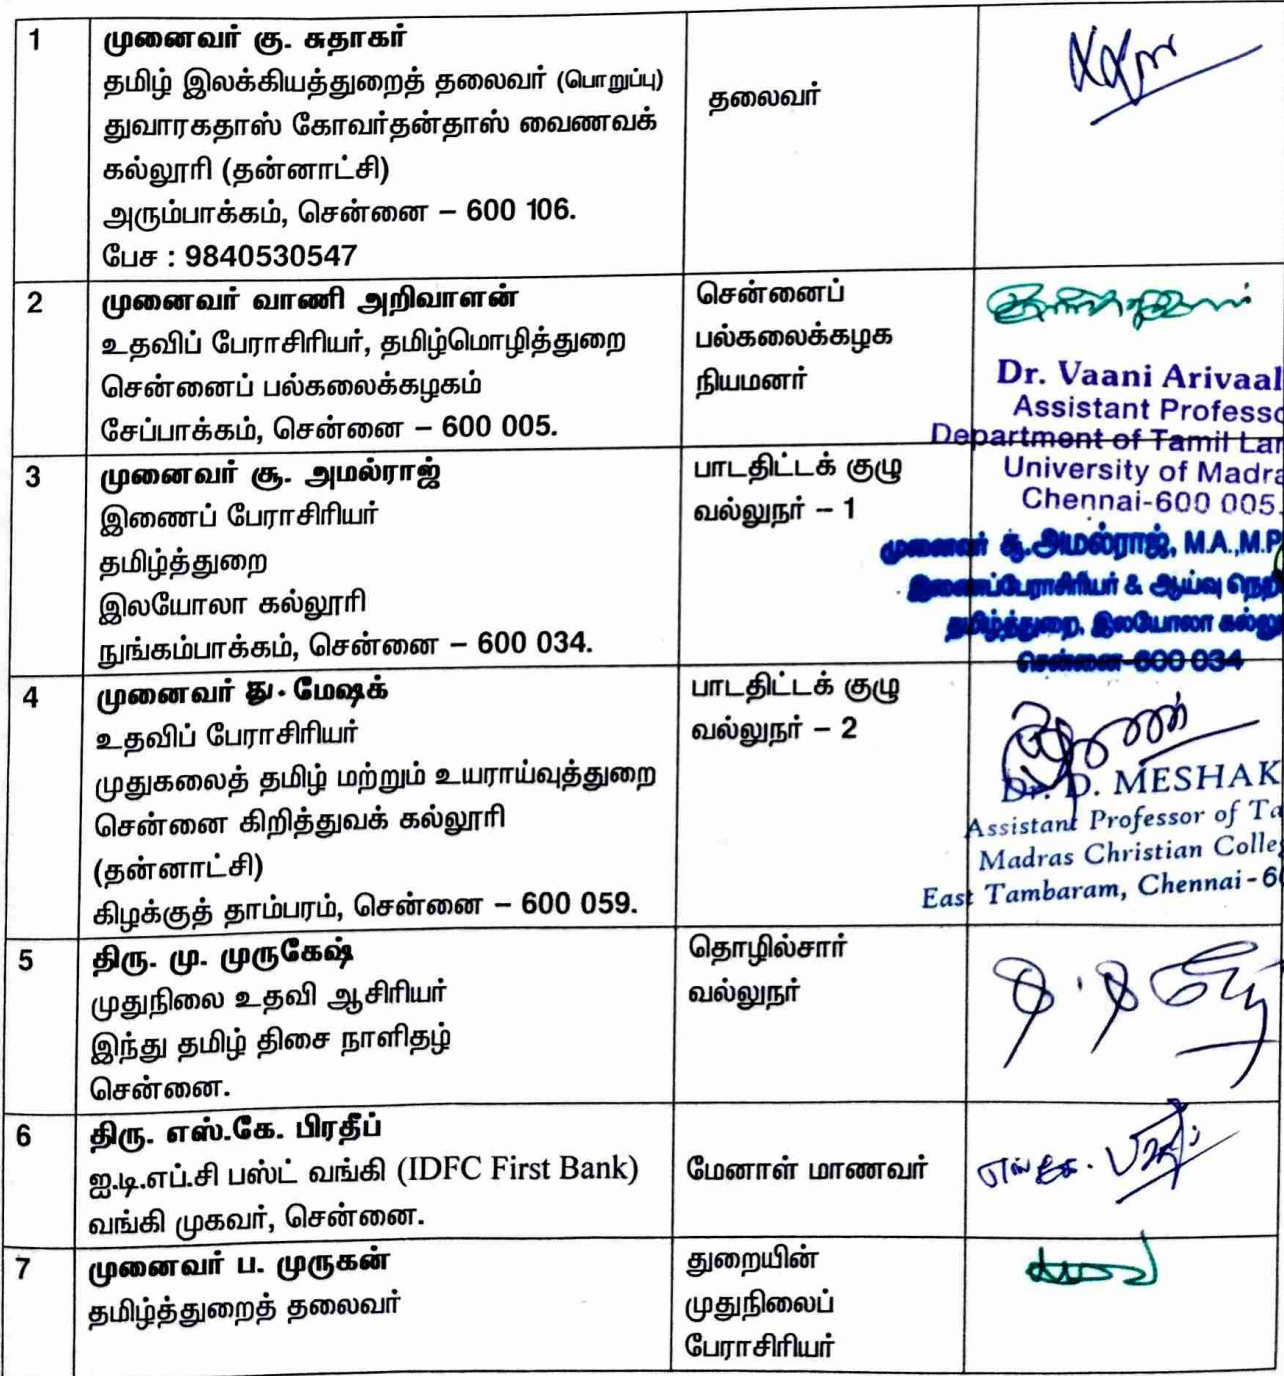 1
முனைவர் கு. சுதாகர்
தமிழ் இலக்கியத்துறைத் தலைவர் (பொறுப்பு)
துவாரகதாஸ் கோவர்தன்தாஸ் வைணவக்
கல்லூரி (தன்னாட்சி)
அரும்பாக்கம், சென்னை – 600 106.
பேச : 9840530547
தலைவர்
2
முனைவர் வாணி அறிவாளன்
உதவிப் பேராசிரியர், தமிழ்மொழித்துறை
சென்னைப் பல்கலைக்கழகம்
சேப்பாக்கம், சென்னை – 600 005.
சென்னைப்
பல்கலைக்கழக
நியமனர்
Dr. Vaani Arivaal
Assistant Professo
Department of Tamil Lan
University of Madra
Chennai-600 005.
3
முனைவர் சூ. அமல்ராஜ்
இணைப் பேராசிரியர்
தமிழ்த்துறை
இலயோலா கல்லூரி
நுங்கம்பாக்கம், சென்னை – 600 034.
பாடதிட்டக் குழு
வல்லுநர் – 1
முனைவர் சூ.அமல்ராஜ், M.A.,M.P
இணைப்பேராசிரியர் & ஆய்வு நெறி
தமிழ்த்துறை, இலயோலா கல்லூ
சென்னை-600 034
4
முனைவர் து. மேஷக்
உதவிப் பேராசிரியர்
முதுகலைத் தமிழ் மற்றும் உயராய்வுத்துறை
சென்னை கிறித்துவக் கல்லூரி
(தன்னாட்சி)
கிழக்குத் தாம்பரம், சென்னை – 600 059.
பாடதிட்டக் குழு
வல்லுநர் – 2
Dr. D. MESHAK
Assistant Professor of Ta
Madras Christian Colleg
East Tambaram, Chennai - 6
5
திரு. மு. முருகேஷ்
முதுநிலை உதவி ஆசிரியர்
இந்து தமிழ் திசை நாளிதழ்
சென்னை.
தொழில்சார்
வல்லுநர்
6
திரு. எஸ்.கே. பிரதீப்
ஐ.டி.எப்.சி பஸ்ட் வங்கி (IDFC First Bank)
வங்கி முகவர், சென்னை.
மேனாள் மாணவர்
எஸ்.கே.
7
முனைவர் ப. முருகன்
தமிழ்த்துறைத் தலைவர்
துறையின்
முதுநிலைப்
பேராசிரியர்